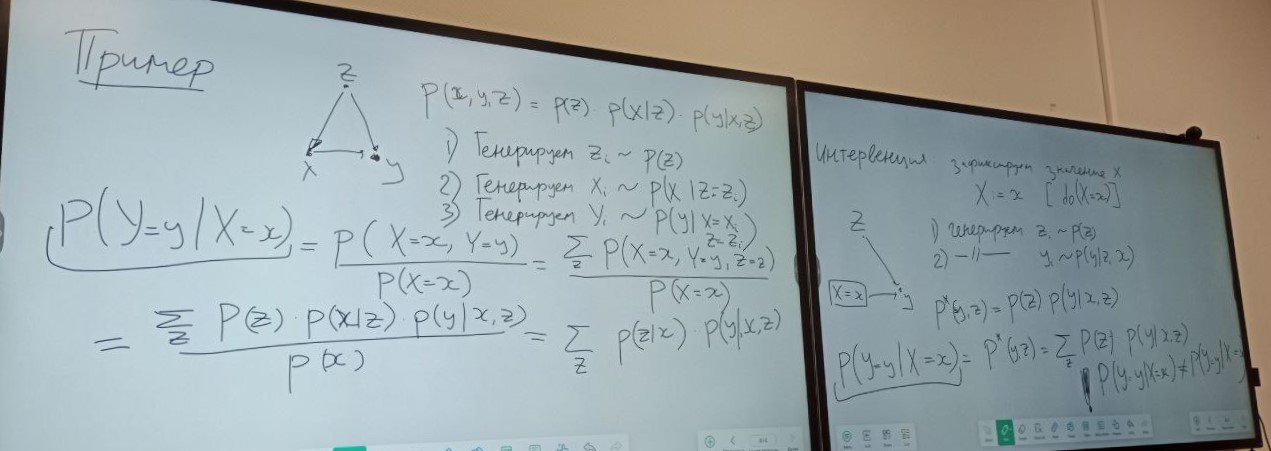 Пример
Z
X
y
P(x, y, z) = p(z) · p(x|z) · p(y|x,z)
1) Генерируем zᵢ ~ P(z)
2) Генерируем Xᵢ ~ P(X | Z=zᵢ)
3) Генерируем Yᵢ ~ P(y | X=Xᵢ, Z=zᵢ)
P(Y=y | X=x) = P(X=x, Y=y) / P(X=x) = Σ_z P(X=x, Y=y, Z=z) / P(X=x)
= Σ_z P(z) · p(x|z) · p(y|x,z) / p(x) = Σ_z p(z|x) · P(y|x,z)
Интервенция зафиксируем значение X
X := x [do(X=x)]
Z
X=x
y
1) Генерируем zᵢ ~ P(z)
2) —//— yᵢ ~ P(y|z, x)
P*(y,z) = P(z) P(y|x,z)
P(Y=y | X=x) = P*(y,z) = Σ_z P(z) P(y|x,z)
P(Y=y|X=x) ≠ P(Y=y|X=